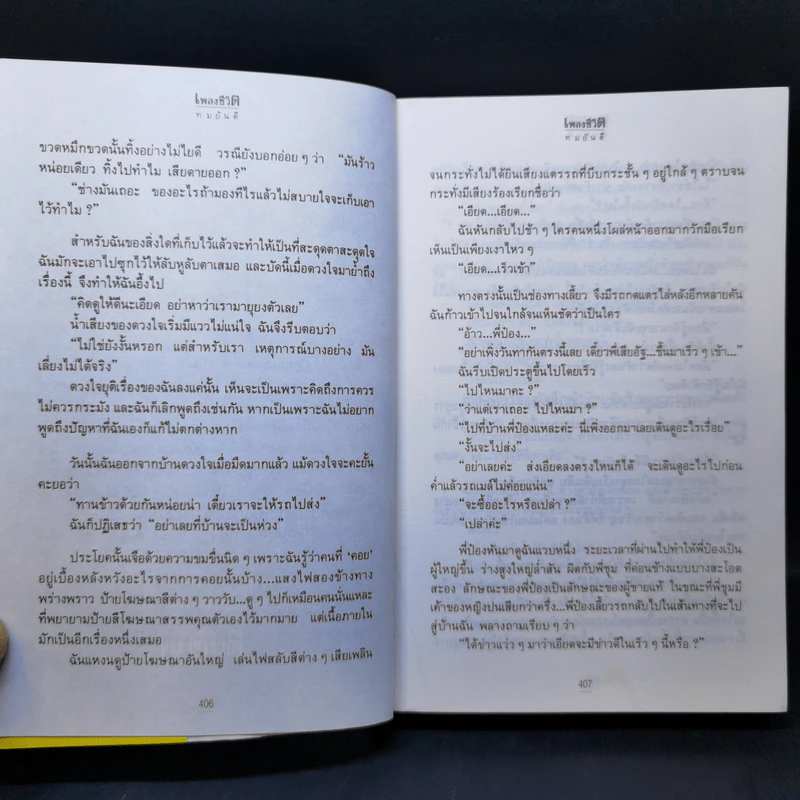 เพลงชีวิต
ทมยันตี
ขวดหมึกขวดนั้นทิ้งอย่างไม่ไยดี วรณียังบอกอ่อย ๆ ว่า “มันร้าว
หน่อยเดียว ทิ้งไปทำไม เสียดายออก ?”
“ช่างมันเถอะ ของอะไรถ้ามองทีไรแล้วไม่สบายใจจะเก็บเอา
ไว้ทำไม ?”
สำหรับฉันของสิ่งใดที่เก็บไว้แล้วจะทำให้เป็นที่สะดุดตาสะดุดใจ
ฉันมักจะเอาไปซุกไว้ให้ลับหูลับตาเสมอ และบัดนี้เมื่อดวงใจมาย้ำถึง
เรื่องนี้ จึงทำให้ฉันอึ้งไป
“คิดดูให้ดีนะเอียด อย่าหาว่าเรามายุยงตัวเลย”
น้ำเสียงของดวงใจเริ่มมีแววไม่แน่ใจ ฉันจึงรีบตอบว่า
“ไม่ใช่ยังงั้นหรอก แต่สำหรับเรา เหตุการณ์บางอย่าง มัน
เลี่ยงไม่ได้จริง”
ดวงใจยุติเรื่องของฉันลงแค่นั้น เห็นจะเป็นเพราะคิดถึงการควร
ไม่ควรกระมัง และฉันก็เลิกพูดถึงเช่นกัน หากเป็นเพราะฉันไม่อยาก
พูดถึงปัญหาที่ฉันเองก็แก้ไม่ตกต่างหาก
วันนั้นฉันออกจากบ้านดวงใจเมื่อมืดมากแล้ว แม้ดวงใจจะคะยั้น
คะยอว่า
“ทานข้าวด้วยกันหน่อยน่า เดี๋ยวเราจะให้รถไปส่ง”
ฉันก็ปฏิเสธว่า “อย่าเลยที่บ้านจะเป็นห่วง”
ประโยคนั้นเจือด้วยความขมขื่นนิด ๆ เพราะฉันรู้ว่าคนที่ ‘คอย’
อยู่เบื้องหลังหวังอะไรจากการคอยนั้นบ้าง...แสงไฟสองข้างทาง
พร่างพราว ป้ายโฆษณาสีต่าง ๆ วาววับ...ดู ๆ ไปก็เหมือนคนนั่นแหละ
ที่พยายามป้ายสีโฆษณาสรรพคุณตัวเองไว้มากมาย แต่เนื้อภายใน
มักเป็นอีกเรื่องหนึ่งเสมอ
ฉันแหงนดูป้ายโฆษณาอันใหญ่ เล่นไฟสลับสีต่าง ๆ เสียเพลิน
406
เพลงชีวิต
ทมยันตี
จนกระทั่งไม่ได้ยินเสียงแตรรถที่บีบกระชั้น ๆ อยู่ใกล้ ๆ ตราบจน
กระทั่งมีเสียงร้องเรียกชื่อว่า
“เอียด...เอียด...”
ฉันหันกลับไปช้า ๆ ใครคนหนึ่งโผล่หน้าออกมากวักมือเรียก
เห็นเป็นเพียงเงาไหว ๆ
“เอียด...เร็วเข้า”
ทางตรงนั้นเป็นช่องทางเลี้ยว จึงมีรถกดแตรไล่หลังอีกหลายคัน
ฉันก้าวเข้าไปจนใกล้จนเห็นชัดว่าเป็นใคร
“อ้าว...พี่ป๋อง...”
“อย่าเพิ่งวินทากันตรงนี้เลย เดี๋ยวพี่เสียอัฐ...ขึ้นมาเร็ว ๆ เข้า...”
ฉันรีบเปิดประตูขึ้นไปโดยเร็ว
“ไปไหนมาคะ ?”
“ว่าแต่เราเถอะ ไปไหนมา ?”
“ไปที่บ้านพี่ป๋องแหละค่ะ นี่เพิ่งออกมาเลยเดินดูอะไรเรื่อย”
“งั้นจะไปส่ง”
“อย่าเลยค่ะ ส่งเอียดลงตรงไหนก็ได้ จะเดินดูอะไรไปก่อน
ค่ำแล้วรถเมล์ไม่ค่อยแน่น”
“จะซื้ออะไรหรือเปล่า ?”
“เปล่าค่ะ”
พี่ป๋องหันมาดูฉันแวบหนึ่ง ระยะเวลาที่ผ่านไปทำให้พี่ป๋องเป็น
ผู้ใหญ่ขึ้น ร่างสูงใหญ่ล่ำสัน ผิดกับพี่ชุม ที่ค่อนข้างแบบบางสะโอด
สะอง ลักษณะของพี่ป๋องเป็นลักษณะของผู้ชายแท้ ในขณะที่พี่ชุมมี
เค้าของหญิงปนเสียกว่าครึ่ง...พี่ป๋องเลี้ยวรถกลับไปในเส้นทางที่จะไป
สู่บ้านฉัน พลางถามเรียบ ๆ ว่า
“ได้ข่าวแว่ว ๆ มาว่าเอียดจะมีข่าวดีในเร็ว ๆ นี้หรือ ?”
407